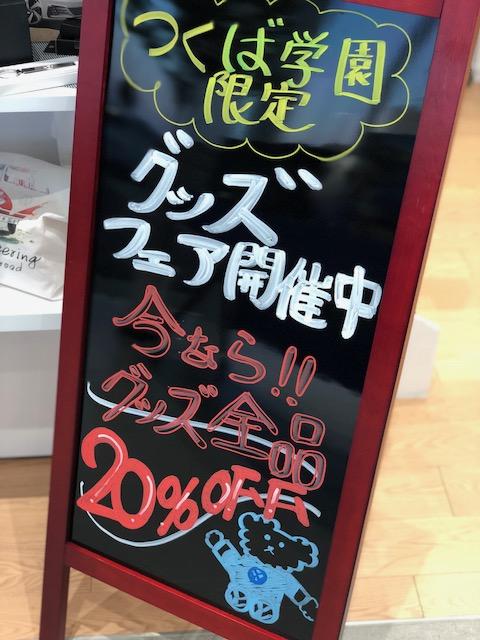 つくば学園
限定
グッズ
フェア開催中
今なら!!
グッズ全品
20%OFF
eering
road